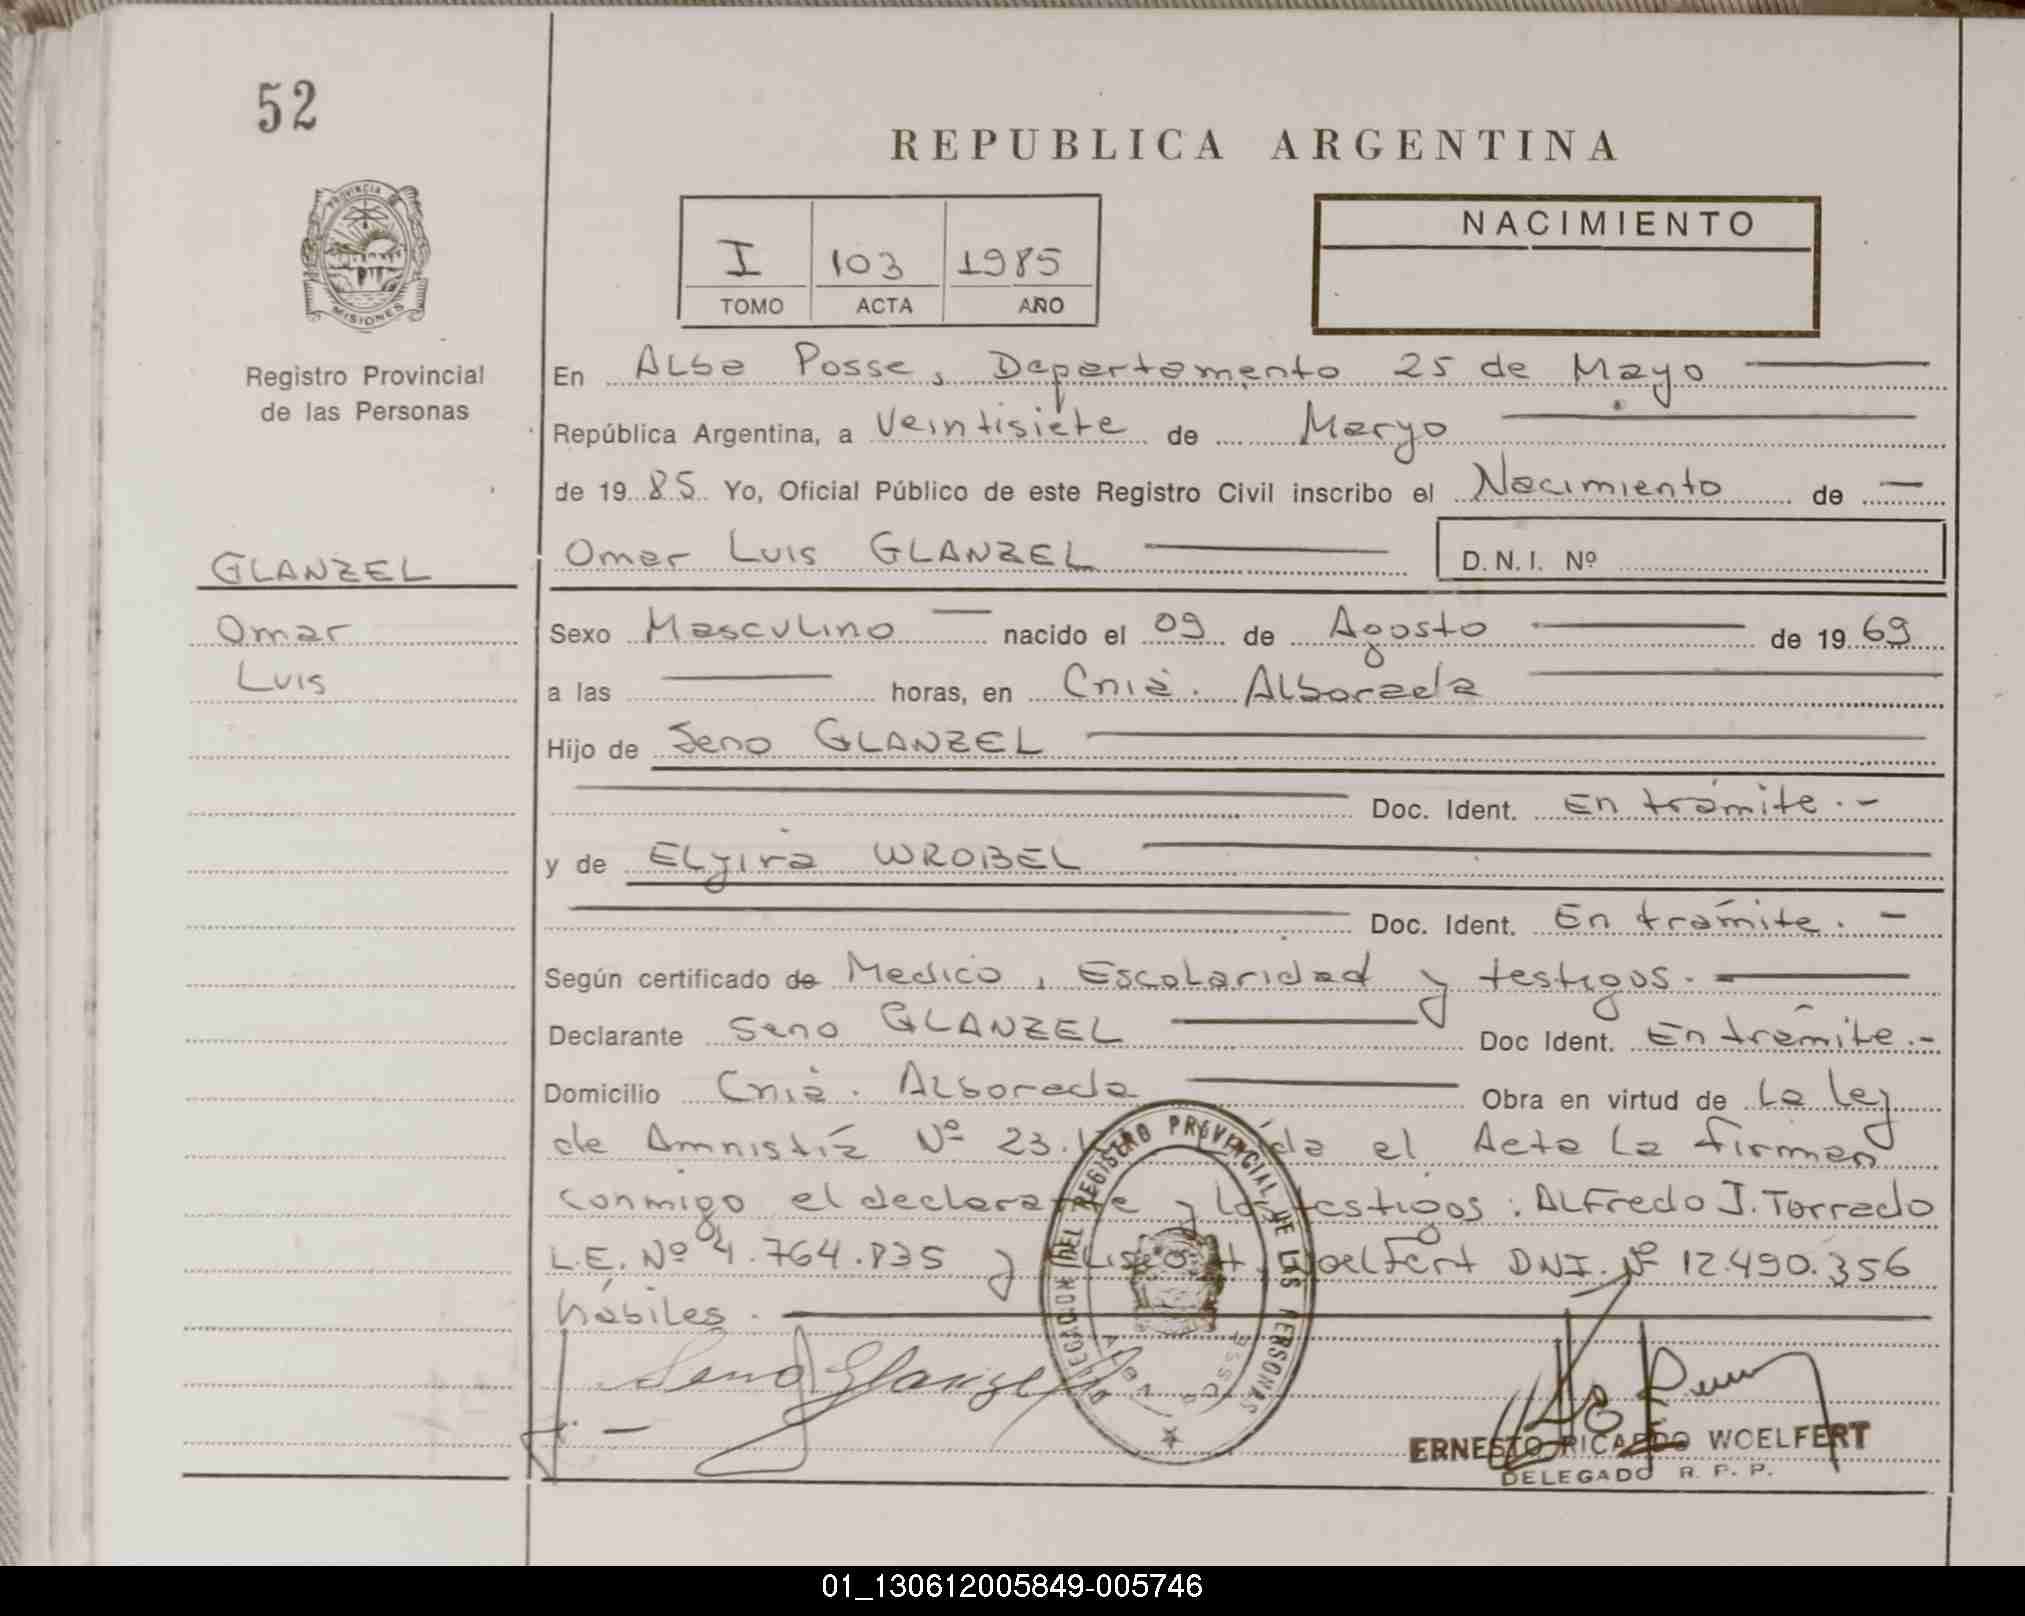 52
REPUBLICA ARGENTINA
PROVINCIA
MISIONES
Registro Provincial
de las Personas
I 103 1985
TOMO ACTA AÑO
NACIMIENTO
En Alba Posse, Departamento 25 de Mayo
República Argentina, a Veintisiete de Maryo
de 1985 Yo, Oficial Público de este Registro Civil inscribo el Nacimiento de —
GLANZEL
Omar
Luis
Omar Luis GLANZEL D.N.I. Nº
Sexo Masculino nacido el 09 de Agosto de 1969
a las horas, en Cniá. Alborada
Hijo de Seno GLANZEL
Doc. Ident. En trámite.-
y de Elyira WROBEL
Doc. Ident. En trámite. -
Según certificado de Medico, Escolaridad y testigos.
Declarante Seno GLANZEL Doc Ident. En trámite.-
Domicilio Cniá. Alborada Obra en virtud de la ley
de Amnistía Nº 23. el Acta la firman
conmigo el declarante y los testigos: Alfredo J. Torrado
L.E. Nº 4.764.835 y Woelfert DNI. Nº 12.490.356
hábiles.
Seno Glanzel
DELEGACION DEL REGISTRO PROVINCIAL DE LAS PERSONAS
ALBA POSSE
ERNESTO RICARDO WOELFERT
DELEGADO R. P. P.
01_130612005849-005746